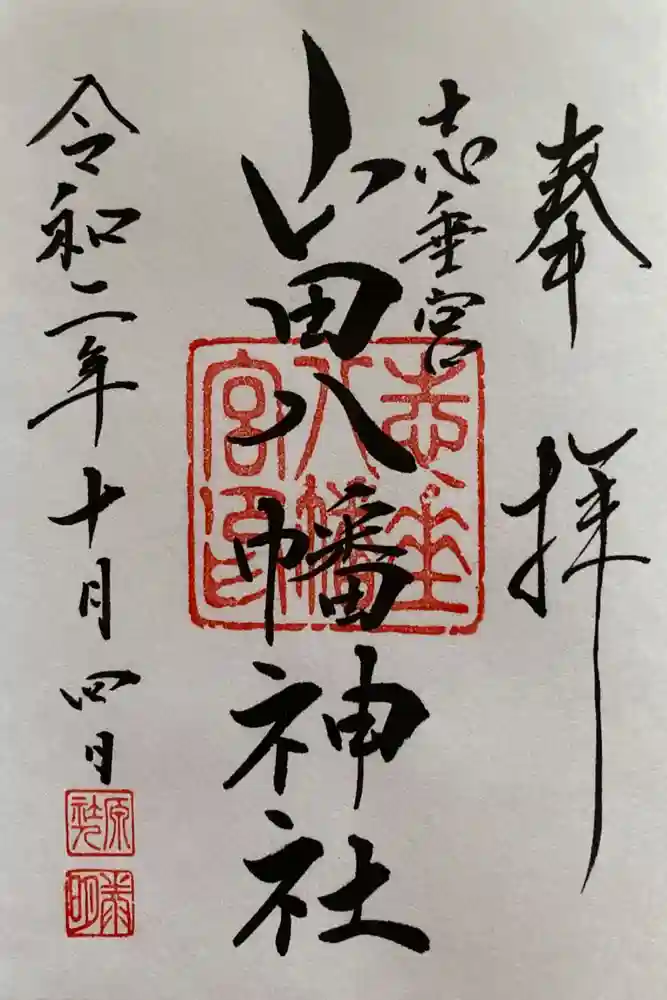 奉拝
志垂宮
山田八幡神社
令和二年十月四日
志垂
八幡
宮印